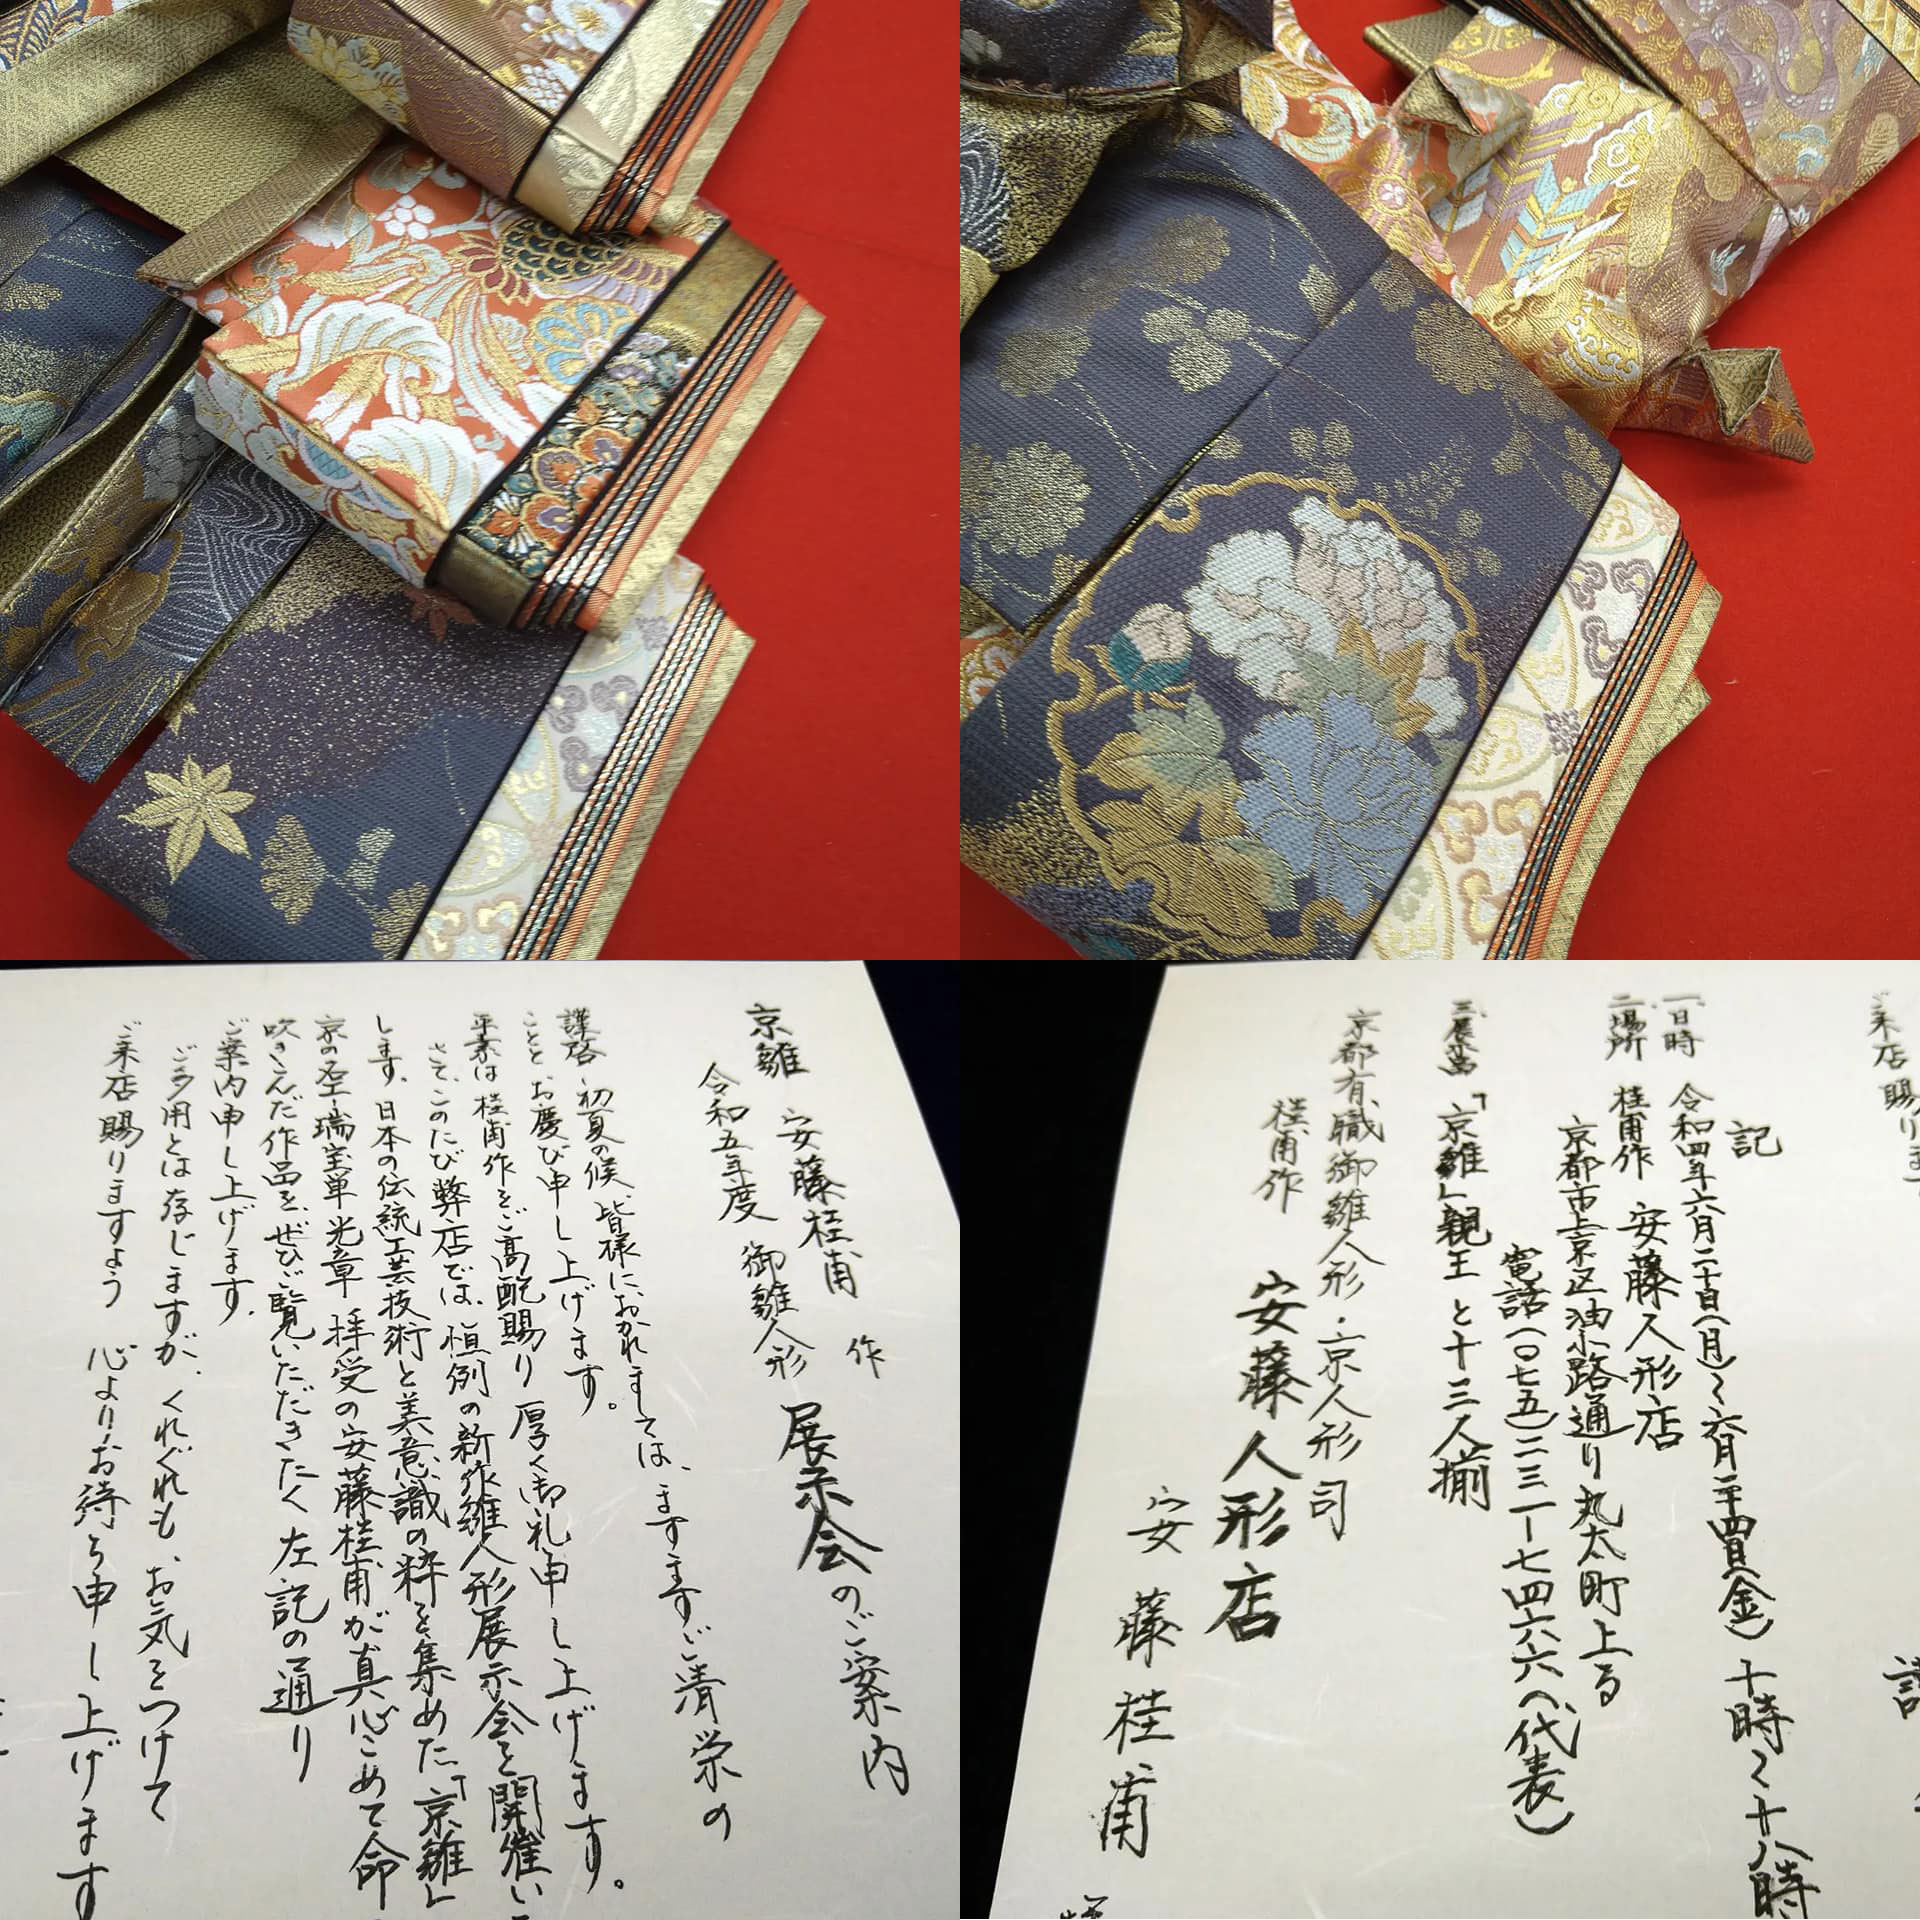 京雛 安藤桂甫 作
令和五年度 御雛人形 展示会のご案内
謹啓 初夏の候、皆様におかれましては、ますますご清栄の
こととお慶び申し上げます。
平素は桂甫作をご高配賜り厚く御礼申し上げます。
さて、このたび弊店では、恒例の新作雛人形展示会を開催い
します。日本の伝統工芸技術と美意識の粋を集めた「京雛」
京の名工・瑞宝単光章 拝受の安藤桂甫が真心こめて命
吹きこんだ作品を、ぜひご覧いただきたく 左記の通り
ご案内申し上げます。
ご多用とは存じますが、くれぐれも、お気をつけて
ご来店賜りますよう 心よりお待ち申し上げます
ご来店賜ります
記
一、日時 令和四年六月二十日(月)〜六月二十四日(金)十時〜十八時
二、場所 桂甫作 安藤人形店
京都市上京区油小路通り丸太町上る
電話(〇七五)二三一-七四六六(代表)
三、展示 「京雛」親王と十三人揃
京都有職御雛人形・京人形司
桂甫作 安藤人形店
安藤桂甫